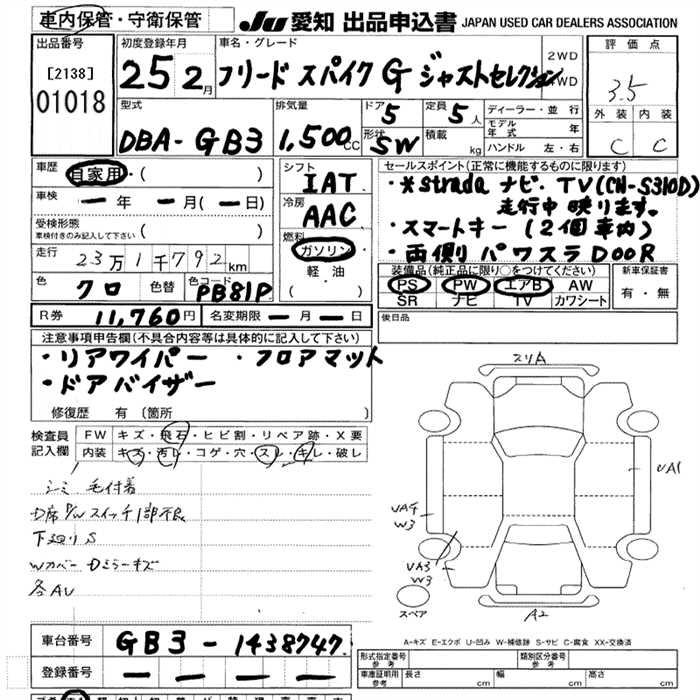 車内保管・守衛保管
JU 愛知 出品申込書 JAPAN USED CAR DEALERS ASSOCIATION
出品番号
[2138]
01018
初度登録年月
25 2月
車名・グレード
フリード スパイク G ジャストセレクション
2WD
4WD
評価点
3.5
外装 内装
C C
型式
DBA-GB3
排気量
1,500cc
ドア
5
形状
SW
定員
5人
積載
kg
ディーラー・並行
モデル年式 年
ハンドル 左・右
車歴
自家用・( )
車検
ー年 ー月(ー日)
受検形態
車検付きのみ記入して下さい ( )
走行
23万1千792km
色
クロ
色替
色コード
PB81P
シフト
IAT
冷房
AAC
燃料
ガソリン
軽油
( )
セールスポイント(正常に機能するものに限ります)
・*strada ナビ・TV(CN-S310D)
走行中映ります。
・スマートキー(2個車内)
・両側パワスラDOOR
装備品(純正品に限り○をつけてください)
PS PW エアB AW
SR ナビ TV カワシート
新車保証書
有・無
R券 11,760円
名変期限 ー月ー日
後日品
注意事項申告欄(不具合内容等は具体的に記入して下さい)
・リアワイパー ・フロアマット
・ドアバイザー
修復歴 有 (箇所 )
検査員
記入欄
FW キズ・飛石・ヒビ割・リペア跡・X要
内装 キズ・汚レ・コゲ・穴・スレ・キレ・破レ
シミ 毛付着
D席P/Wスイッチ1部不良
下廻りS
Wカバー Dミラーキズ
各AU
スリA
UA1
UA4
W3
UA3
W3
スペア
A2
A-キズ E-エクボ U-凹み W-補修跡 S-サビ C-腐食 XX-交換済
車台番号 GB3-1438747.
登録番号 ー ー ー ー
形式指定番号
参考
類別区分番号
参考
車庫証明用
参考
長さ cm 幅 cm 高さ cm